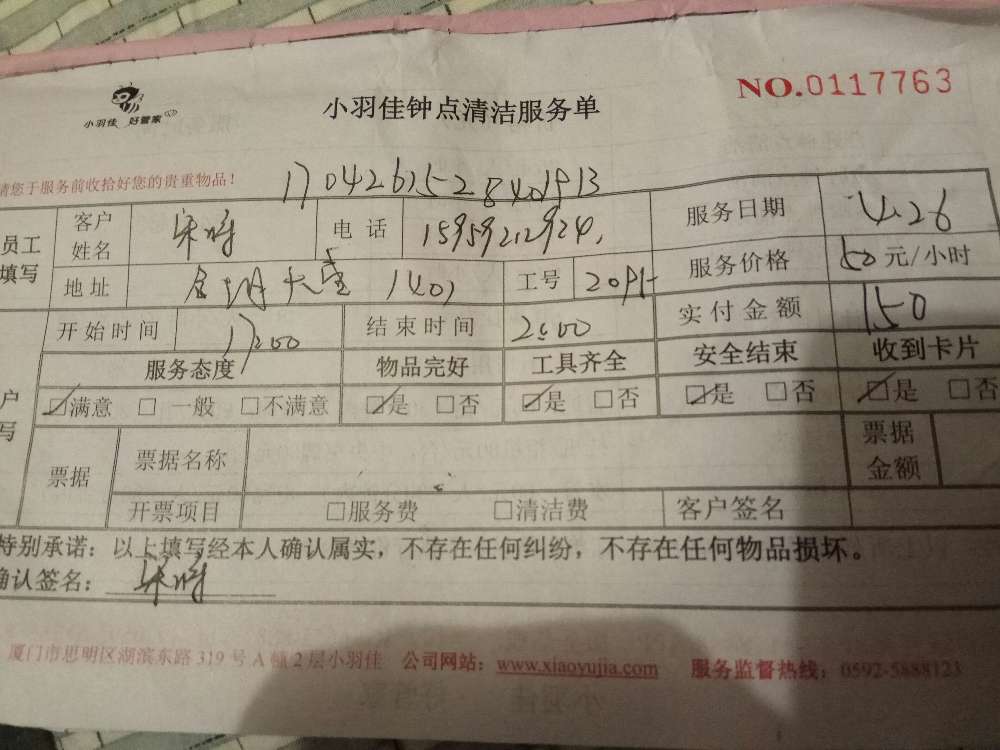 小羽佳 好管家
小羽佳钟点清洁服务单
NO.0117763
请您于服务前收拾好您的贵重物品！
员工填写 客户姓名 电话 15959212924 服务日期 4.26
地址 1401 工号 服务价格 50元/小时
开始时间 17:00 结束时间 20:00 实付金额 150
服务态度 物品完好 工具齐全 安全结束 收到卡片
☑满意 □一般 □不满意 ☑是 □否 ☑是 □否 ☑是 □否 ☑是 □否
户写
票据 票据名称 票据金额
开票项目 □服务费 □清洁费 客户签名
特别承诺：以上填写经本人确认属实，不存在任何纠纷，不存在任何物品损坏。
确认签名：
厦门市思明区湖滨东路319号A幢2层小羽佳 公司网站：www.xiaoyujia.com 服务监督热线：0592-5888123